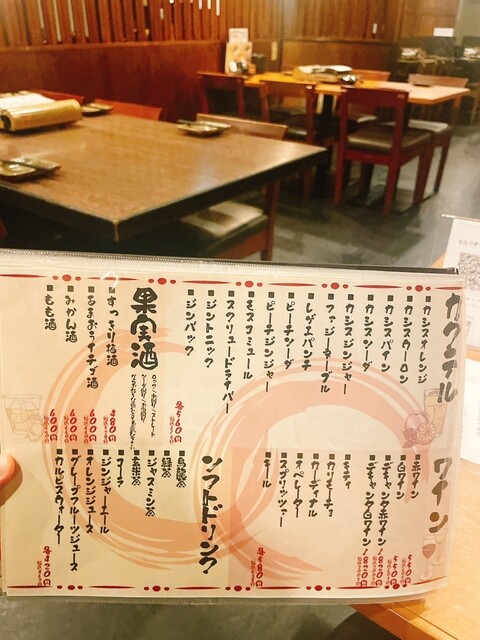 カクテル
■カシスオレンジ
■カシスウーロン
■カシスパイン
■カシスソーダ
■カシスジンジャー
■ファジーネーブル
■レゲエパンチ
■ピーチソーダ
■ピーチジンジャー
■モスコミュール
■スクリュードライバー
■ジントニック
■ジンバック
各560円
果実酒
ロック・水割り・ストレート
ソーダ割り・お湯割り
■すっきり梅酒
480円
■あまおうイチゴ酒
600円
■みかん酒
600円
■もも酒
600円
ワイン
■赤ワイン
550
■白ワイン
550
■デキャンタ赤ワイン
1820円
■デキャンタ白ワイン
1820円
■キティ
■カリモーチョ
■カーディナル
■オペレーター
■スプリッツァー
■キール
各580円
ソフトドリンク
■烏龍茶
■緑茶
■ジャスミン茶
■玄米茶
■コーラ
■ジンジャーエール
■オレンジジュース
■グレープフルーツジュース
■カルピスウォーター
各420円